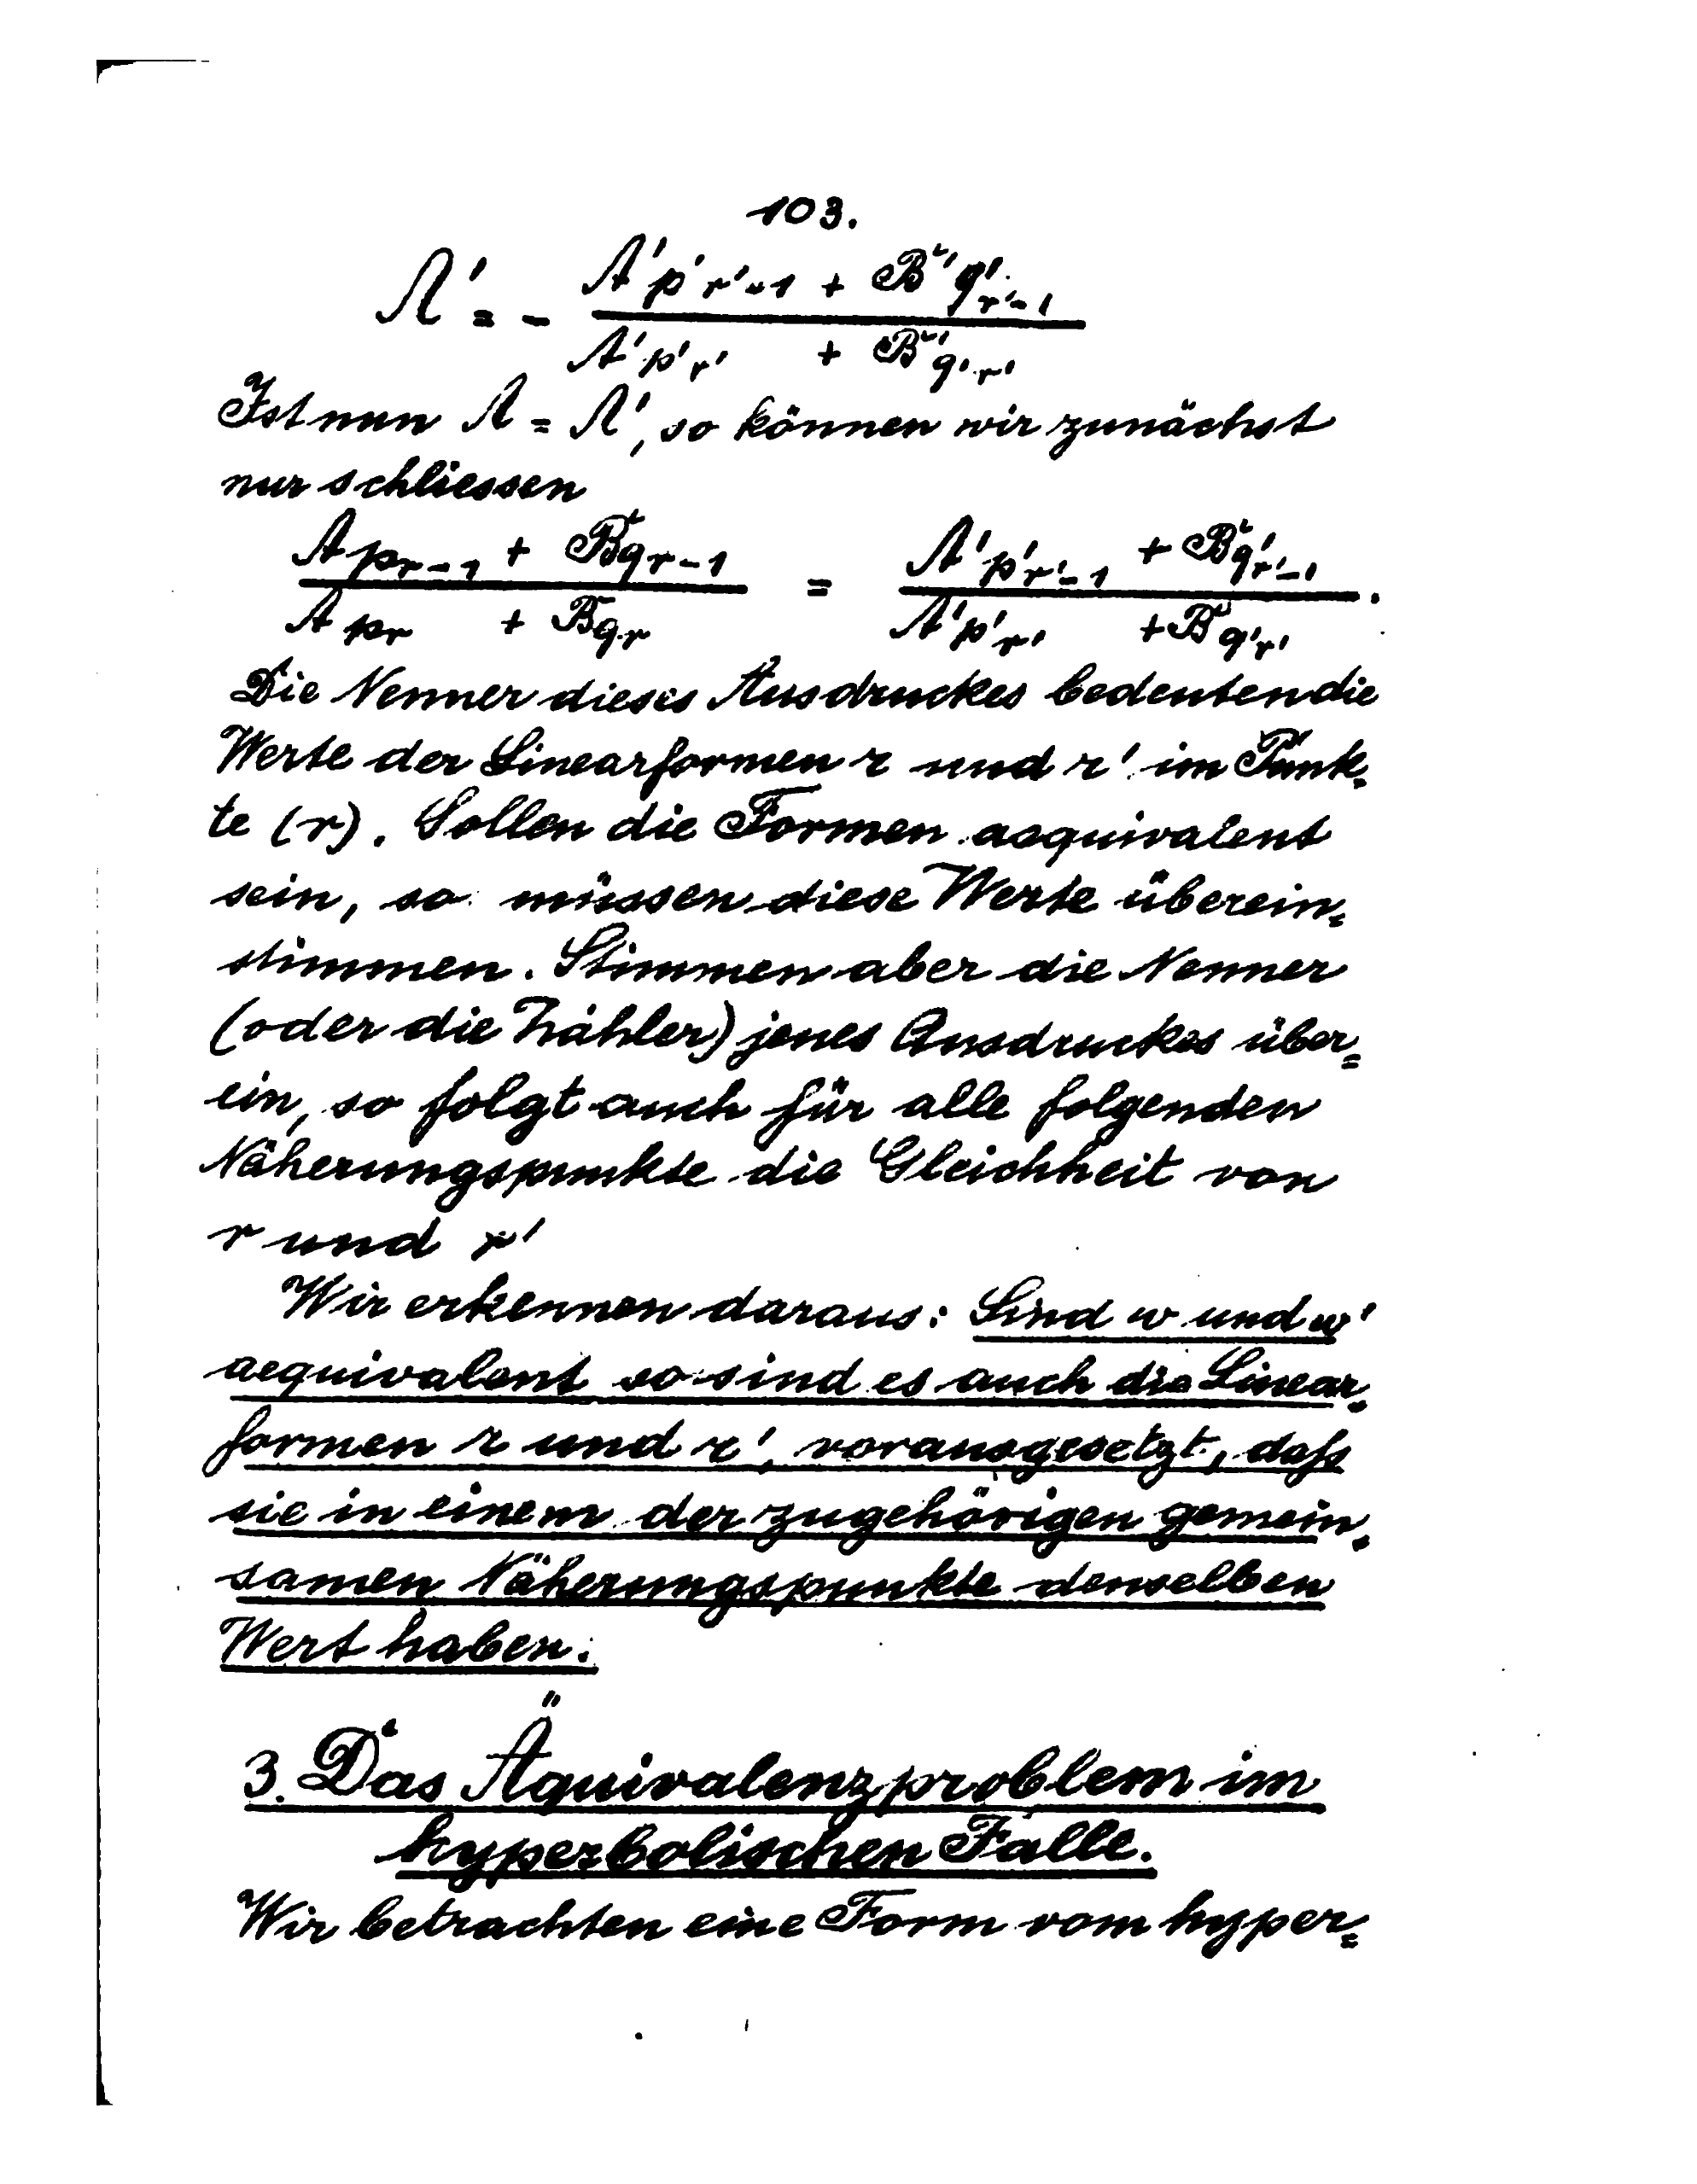 103.
Λ' = - (A'p'r'-1 + B'q'r'-1) / (A'p'r' + B'q'r')
Ist nun Λ = Λ', so können wir zunächst
nur schliessen
(A pr-1 + B qr-1) / (A pr + B qr) = (A'p'r'-1 + B q'r'-1) / (A'p'r' + B q'r').
Die Nenner dieses Ausdruckes bedeuten die
Werte der Linearformen r und r' im Punk=
te (r). Sollen die Formen aequivalent
sein, so müssen diese Werte überein=
stimmen. Stimmen aber die Nenner
(oder die Zähler) jenes Ausdruckes über=
ein, so folgt auch für alle folgenden
Näherungspunkte die Gleichheit von
r und r'
Wir erkennen daraus: Sind w und w'
aequivalent so sind es auch die Linear=
formen r und r', vorausgesetzt, daß
sie in einem der zugehörigen gemein=
samen Näherungspunkte denselben
Wert haben.
3. Das Äquivalenzproblem im
hyperbolischen Falle.
Wir betrachten eine Form vom hyper=